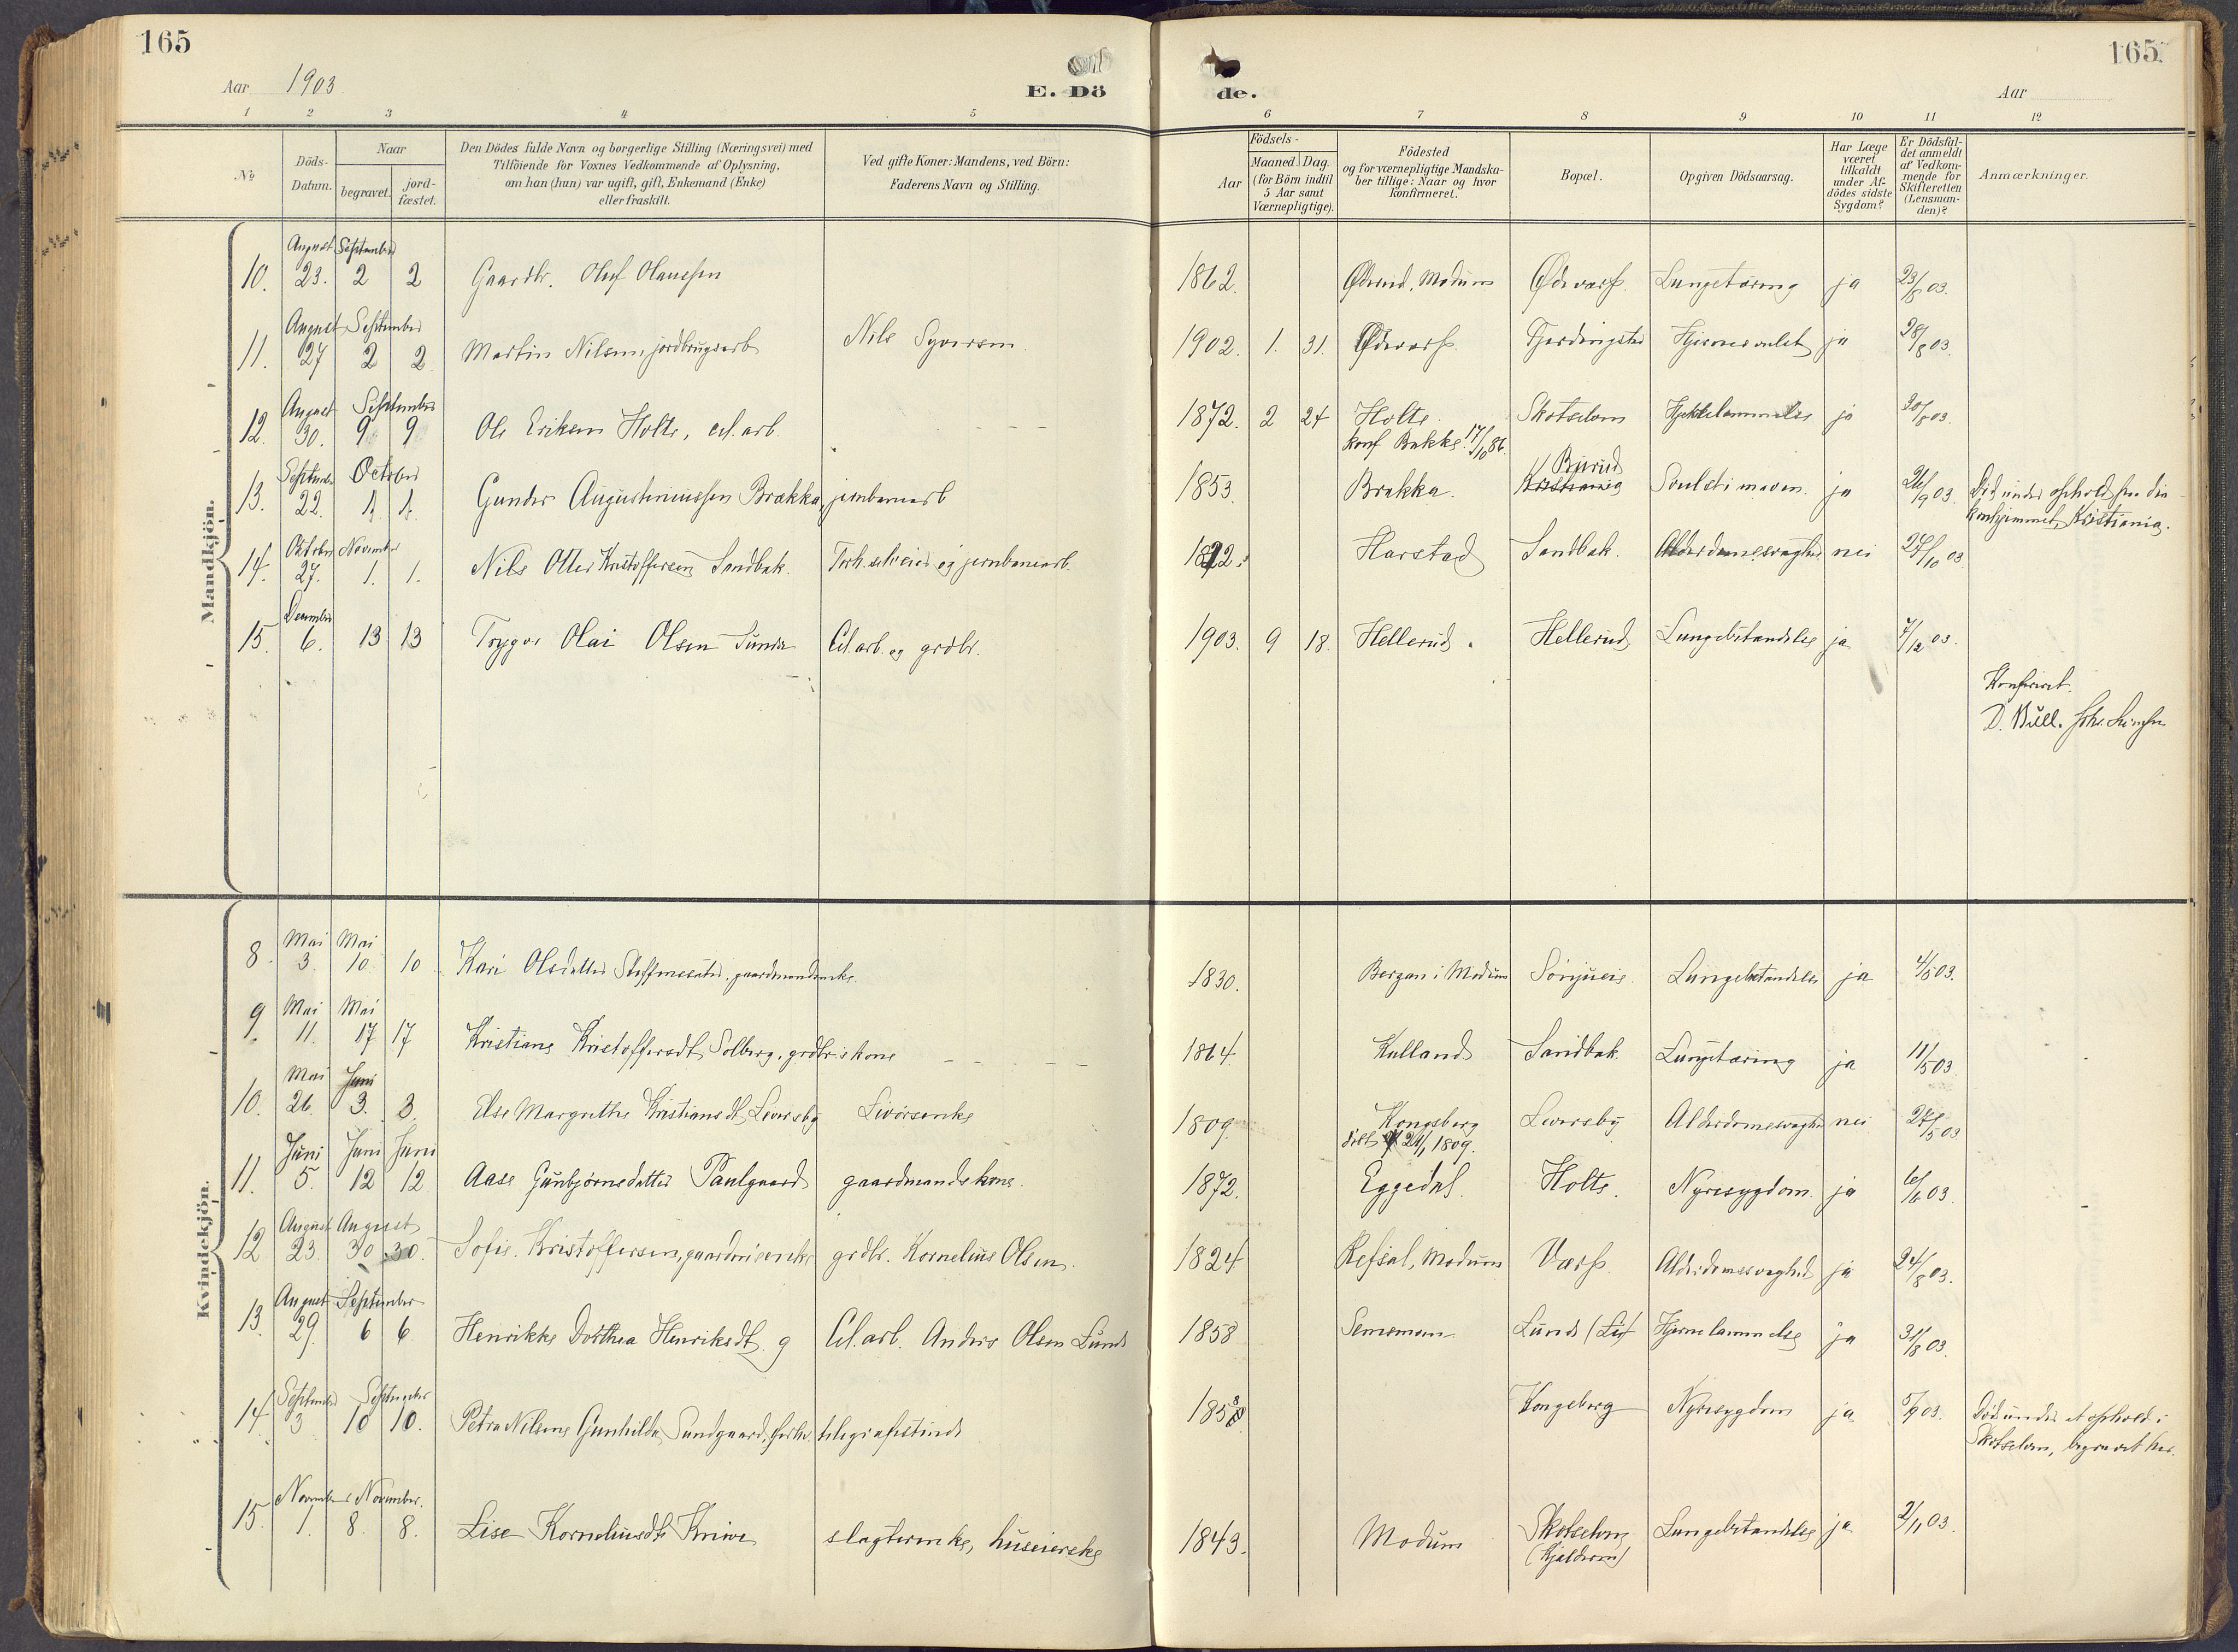 165
165.
Aar 1903.
E. Dö
de.
Aar
1 2 3 4 5 6 7 8 9 10 11 12
No
Döds-Datum.
Naar
begravet.
jord-fæstet.
Den Dödes fulde Navn og borgerlige Stilling (Næringsvei) med
Tilföiende for Voxnes Vedkommende af Oplysning,
om han (hun) var ugift, gift, Enkemand (Enke)
eller fraskilt.
Ved gifte Koner: Mandens, ved Börn:
Faderens Navn og Stilling.
Födsels-
Aar
Maaned. Dag.
(for Börn indtil
5 Aar samt
Værnepligtige).
Födested
og for værnepligtige Mandska-
ber tillige: Naar og hvor
konfirmeret.
Bopæl.
Opgiven Dödsaarsag.
Har Læge
været
tilkaldt
under Af-
dödes sidste
Sygdom?
Er Dödsfal-
det anmeldt
af Vedkom-
mende for
Skifteretten
(Lensman-
den)?
Anmærkninger.
Mandkjön.
August September
10. 23. 2 2 Gaardbr. Oluf Olaussen 1862. Modum Lungetæring ja 23/8 03.
August September
11. 27 2 2 Martin Nilsen, jordbrugsarb Nils Syversen 1902. 1. 31. ja 28/8 03.
August September
12. 30. 9 9 Ole Eriksen Holte, cel. arb. 1872. 2 24 Holte. Skotselven Hjertelammelse ja 30/8 03.
konf Bakke 17/10 86.
September October
13. 22. 1. 1. Gunder Augustiniussen Brækka, jernbanearb 1853. Brækka. Burud Kristiania Svulst i maven. ja 26/9 03. Död under ophold paa
Kristiania.
Oktober November
14. 27. 1. 1. Nils Otter Kristoffersen Sandbak. Forh. selveier og jernbanearb. 1822. Harstad Sandbak. Alderdomssvaghed nei 27/10 03.
December
15. 6. 13 13 Trygve Olai Olsen Sunde Cel. arb. og grdbr. 1903. 9 18. Hellerud. Hellerud Lungebetændelse ja 7/12 03.
Konfereret.
D. Bull.
Kvindekjön.
Mai Mai
8. 3. 10. 10 Kari Olsdatter Steffenssæter, gaardmandsenke. 1830. Bergan i Modum Lungebetændelse ja 4/5 03.
Mai Mai
9. 11. 17 17 Kristiane Kristoffersdt. Solberg, grdbr.s kone 1864. Kulland Sandbak. Lungetæring ja 11/5 03
Mai Juni
10. 26. 3. 3. Else Margrethe Kristiansdt. Leversby Livörsenke 1809. Kongsberg Leversby Alderdomssvaghed nei 27/5 03
döbt 24/1 1809.
Juni Juni Juni
11. 5. 12 12 Aase Gunbjørnsdatter Paulgaard gaardmandskone. 1872. Eggedal. Holte. Nyresygdom. ja 6/6 03.
August August
12 23. 30 30. Sofie Kristoffersen, gaardmdsenke grdbr. Kornelius Olsen. 1824 Refsal, Modum Værp. Alderdomssvaghed ja 24/8 03.
August September
13. 29. 6 6. Henrikke Dorthea Henriksdt. g Cel. arb. Anders Olsen Lund 1858 Semsmoen Lund Hjernelammelse ja 31/8 03.
September September
14. 3 10 10. Petra Nilsine Gunhilda Sundgaard, forhv. telegrafistinde 1858 Kongsberg Nyresygdom ja 5/9 03. Död under et ophold i
Skotselven, begravet her.
November November.
15. 1. 8. 8. Lise Korneliusdt. Knive slagterenke, huseierske 1843. Modum Skotselven Lungebetændelse ja 2/11 03.
(Kjældrom)